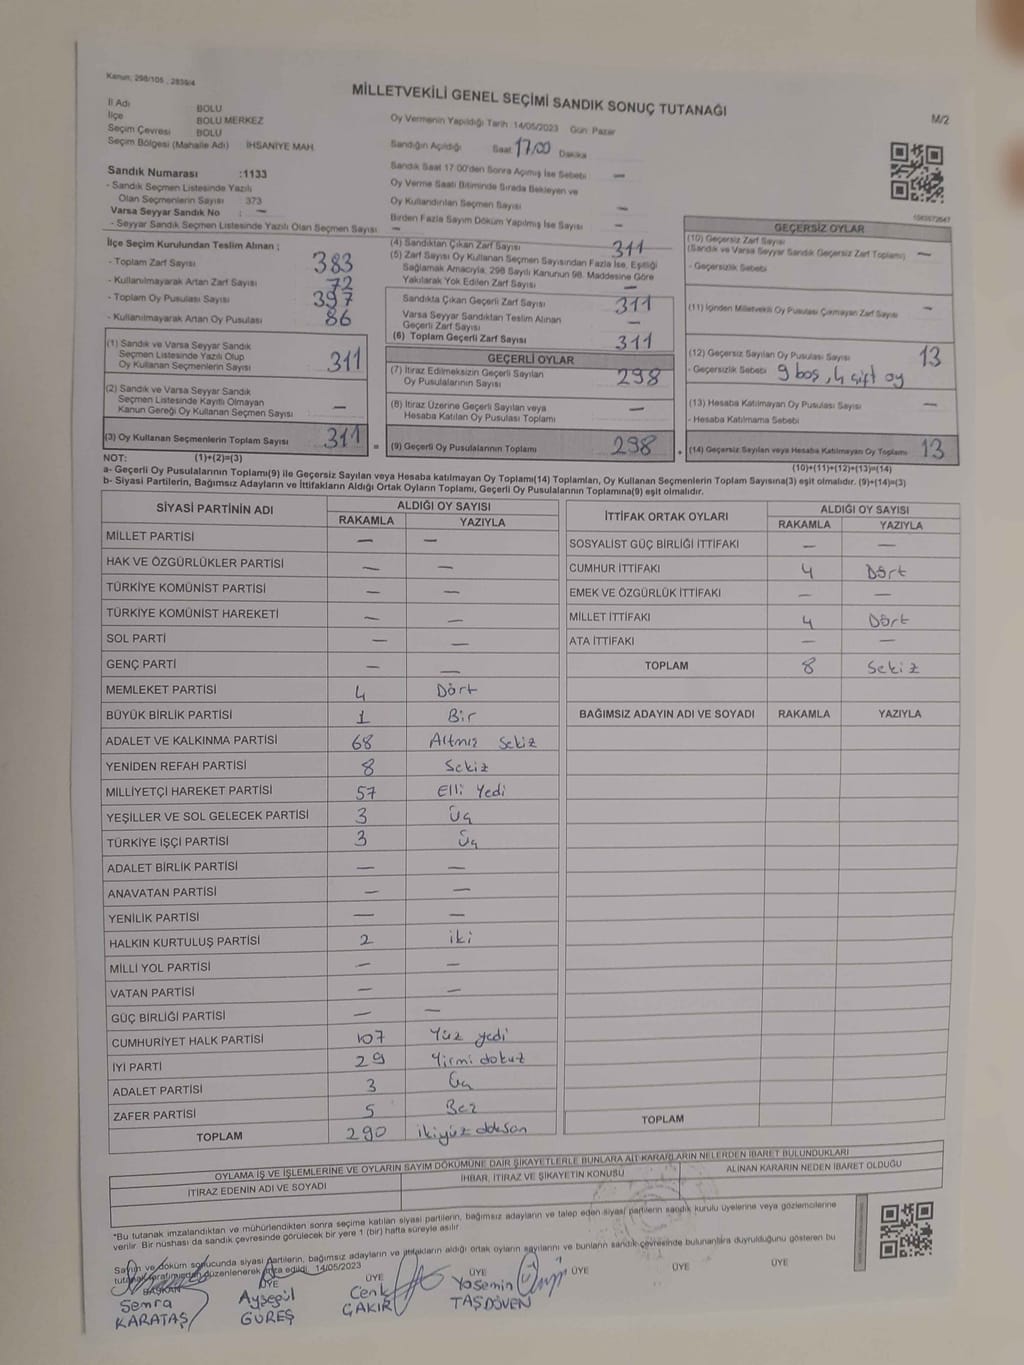 Kanun; 298/105 ; 2839/4
MİLLETVEKİLİ GENEL SEÇİMİ SANDIK SONUÇ TUTANAĞI
M/2
İl Adı BOLU
İlçe BOLU MERKEZ
Seçim Çevresi BOLU
Seçim Bölgesi (Mahalle Adı) İHSANİYE MAH.
Oy Vermenin Yapıldığı Tarih: 14/05/2023 Gün: Pazar
Sandığın Açıldığı Saat 17,00 Dakika
Sandık Saat 17:00'den Sonra Açılmış İse Sebebi —
Oy Verme Saati Bitiminde Sırada Bekleyen ve
Oy Kullandırılan Seçmen Sayısı —
Birden Fazla Sayım Döküm Yapılmış İse Sayısı —
Sandık Numarası :1133
- Sandık Seçmen Listesinde Yazılı
Olan Seçmenlerin Sayısı 373
Varsa Seyyar Sandık No : —
- Seyyar Sandık Seçmen Listesinde Yazılı Olan Seçmen Sayısı: —
İlçe Seçim Kurulundan Teslim Alınan ;
- Toplam Zarf Sayısı 383
- Kullanılmayarak Artan Zarf Sayısı 72
- Toplam Oy Pusulası Sayısı 397
- Kullanılmayarak Artan Oy Pusulası 86
(1) Sandık ve Varsa Seyyar Sandık
Seçmen Listesinde Yazılı Olup
Oy Kullanan Seçmenlerin Sayısı 311
(2) Sandık ve Varsa Seyyar Sandık
Seçmen Listesinde Kayıtlı Olmayan
Kanun Gereği Oy Kullanan Seçmen Sayısı —
(3) Oy Kullanan Seçmenlerin Toplam Sayısı 311 =
(4) Sandıktan Çıkan Zarf Sayısı 311
(5) Zarf Sayısı Oy Kullanan Seçmen Sayısından Fazla İse, Eşitliği
Sağlamak Amacıyla; 298 Sayılı Kanunun 98. Maddesine Göre
Yakılarak Yok Edilen Zarf Sayısı —
Sandıkta Çıkan Geçerli Zarf Sayısı 311
Varsa Seyyar Sandıktan Teslim Alınan
Geçerli Zarf Sayısı —
(6) Toplam Geçerli Zarf Sayısı 311
GEÇERLİ OYLAR
(7) İtiraz Edilmeksizin Geçerli Sayılan
Oy Pusulalarının Sayısı 298
(8) İtiraz Üzerine Geçerli Sayılan veya
Hesaba Katılan Oy Pusulası Toplamı —
(9) Geçerli Oy Pusulalarının Toplamı 298 +
GEÇERSİZ OYLAR
(10) Geçersiz Zarf Sayısı
(Sandık ve Varsa Seyyar Sandık Geçersiz Zarf Toplamı) —
- Geçersizlik Sebebi
(11) İçinden Milletvekili Oy Pusulası Çıkmayan Zarf Sayısı —
(12) Geçersiz Sayılan Oy Pusulası Sayısı 13
- Geçersizlik Sebebi 9 boş, 4 çift oy
(13) Hesaba Katılmayan Oy Pusulası Sayısı —
- Hesaba Katılmama Sebebi
(14) Geçersiz Sayılan veya Hesaba Katılmayan Oy Toplamı 13
NOT: (1)+(2)=(3) (10)+(11)+(12)+(13)=(14)
a- Geçerli Oy Pusulalarının Toplamı(9) ile Geçersiz Sayılan veya Hesaba katılmayan Oy Toplamı(14) Toplamları, Oy Kullanan Seçmenlerin Toplam Sayısına(3) eşit olmalıdır. (9)+(14)=(3)
b- Siyasi Partilerin, Bağımsız Adayların ve İttifakların Aldığı Oy Sayıların Toplamı, Geçerli Oy Pusulalarının Toplamına(9) eşit olmalıdır.
SİYASİ PARTİNİN ADI ALDIĞI OY SAYISI
RAKAMLA YAZIYLA
MİLLET PARTİSİ — —
HAK VE ÖZGÜRLÜKLER PARTİSİ — —
TÜRKİYE KOMÜNİST PARTİSİ — —
TÜRKİYE KOMÜNİST HAREKETİ — —
SOL PARTİ — —
GENÇ PARTİ — —
MEMLEKET PARTİSİ 4 Dört
BÜYÜK BİRLİK PARTİSİ 1 Bir
ADALET VE KALKINMA PARTİSİ 68 Altmış Sekiz
YENİDEN REFAH PARTİSİ 8 Sekiz
MİLLİYETÇİ HAREKET PARTİSİ 57 Elli Yedi
YEŞİLLER VE SOL GELECEK PARTİSİ 3 Üç
TÜRKİYE İŞÇİ PARTİSİ 3 Üç
ADALET BİRLİK PARTİSİ — —
ANAVATAN PARTİSİ — —
YENİLİK PARTİSİ — —
HALKIN KURTULUŞ PARTİSİ 2 iki
MİLLİ YOL PARTİSİ — —
VATAN PARTİSİ — —
GÜÇ BİRLİĞİ PARTİSİ — —
CUMHURİYET HALK PARTİSİ 107 Yüz yedi
İYİ PARTİ 29 Yirmi dokuz
ADALET PARTİSİ 3 Üç
ZAFER PARTİSİ 5 Beş
TOPLAM 290 ikiyüz doksan
İTTİFAK ORTAK OYLARI ALDIĞI OY SAYISI
RAKAMLA YAZIYLA
SOSYALİST GÜÇ BİRLİĞİ İTTİFAKI — —
CUMHUR İTTİFAKI 4 Dört
EMEK VE ÖZGÜRLÜK İTTİFAKI — —
MİLLET İTTİFAKI 4 Dört
ATA İTTİFAKI — —
TOPLAM 8 Sekiz
BAĞIMSIZ ADAYIN ADI VE SOYADI RAKAMLA YAZIYLA
TOPLAM
OYLAMA İŞ VE İŞLEMLERİNE VE OYLARIN SAYIM DÖKÜMÜNE DAİR ŞİKAYETLERLE BUNLARA AİT KARARLARIN NELERDEN İBARET BULUNDUKLARI
İTİRAZ EDENİN ADI VE SOYADI İHBAR, İTİRAZ VE ŞİKAYETİN KONUSU ALINAN KARARIN NEDEN İBARET OLDUĞU
*Bu tutanak imzalandıktan ve mühürlendikten sonra seçime katılan siyasi partilerin, bağımsız adayların ve talep eden siyasi partilerin sandık kurulu üyelerine veya gözlemcilerine
verilir. Bir nüshası da sandık çevresinde görülecek bir yere 1 (bir) hafta süreyle asılır.
Sayım ve döküm sonucunda siyasi partilerin, bağımsız adayların ve ittifakların aldığı ortak oyların sayılarını ve bunların sandık çevresinde bulunanlara duyrulduğunu gösteren bu
tutanak tarafımızdan düzenlenerek imza edildi. 14/05/2023
BAŞKAN ÜYE ÜYE ÜYE ÜYE ÜYE ÜYE
Semra Ayşegül Cenk Yasemin
KARATAŞ GÜREŞ ÇAKIR TAŞDÖVEN